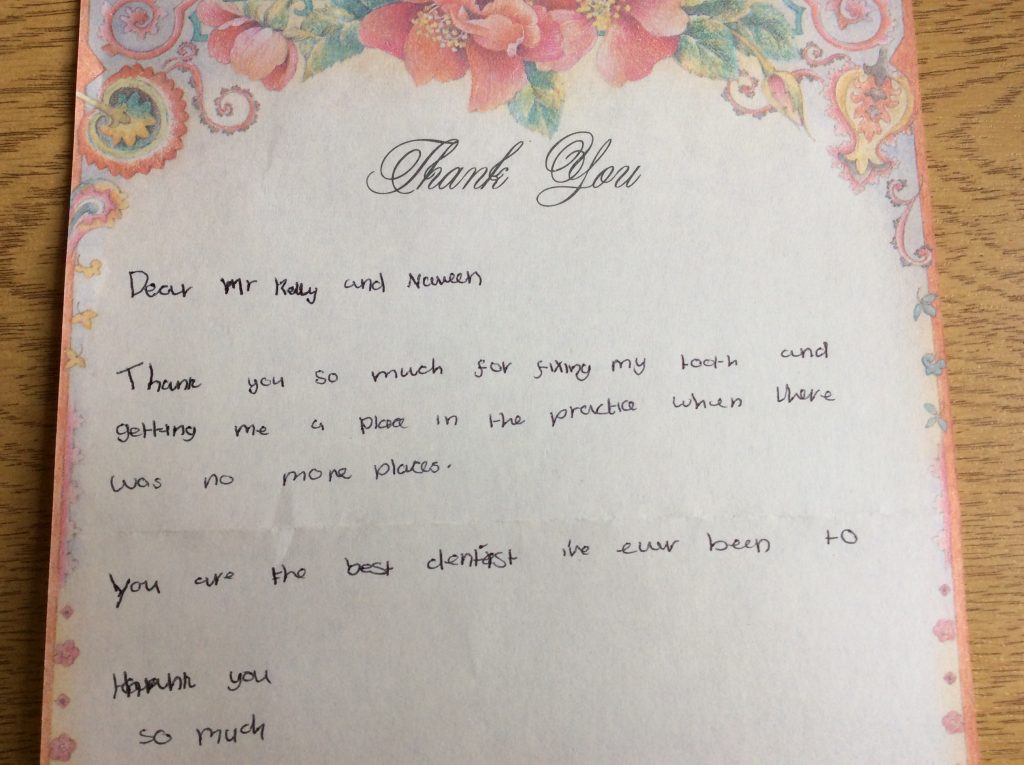 Thank You
Dear Mr Kelly and Naveen
Thank you so much for fixing my tooth and
getting me a place in the practice when there
was no more places.
You are the best dentist i've ever been to
Thank you
so much